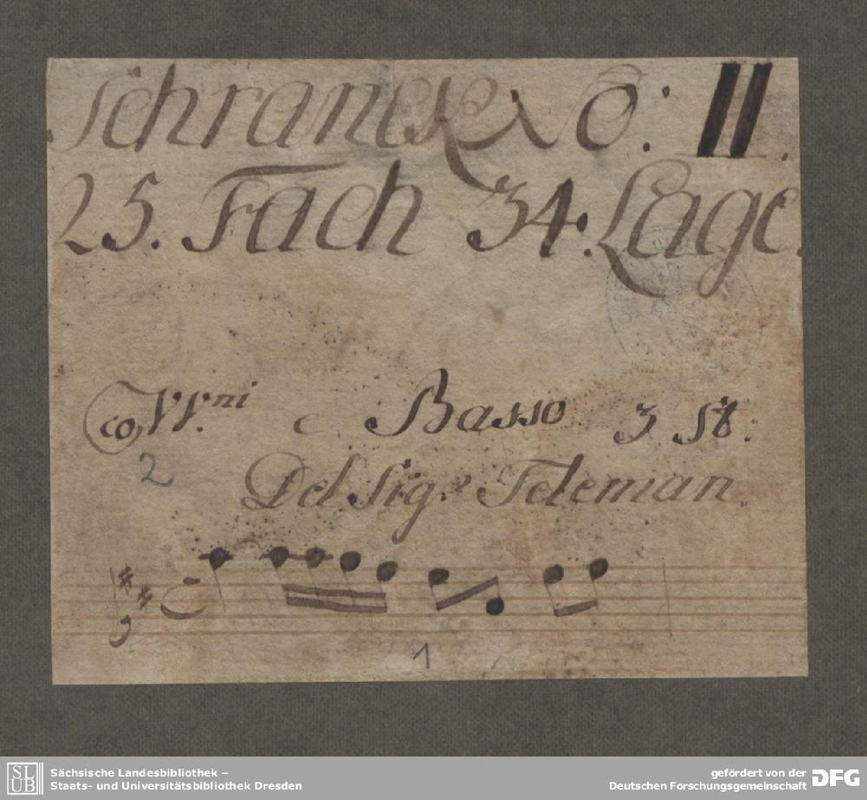 Schranck No: II.
25. Fach 34. Lage.
co VV.ni e Basso 3 St.
2
Del Sig.r Teleman.
1
SLUB
Sächsische Landesbibliothek –
Staats- und Universitätsbibliothek Dresden
gefördert von der
Deutschen Forschungsgemeinschaft
DFG